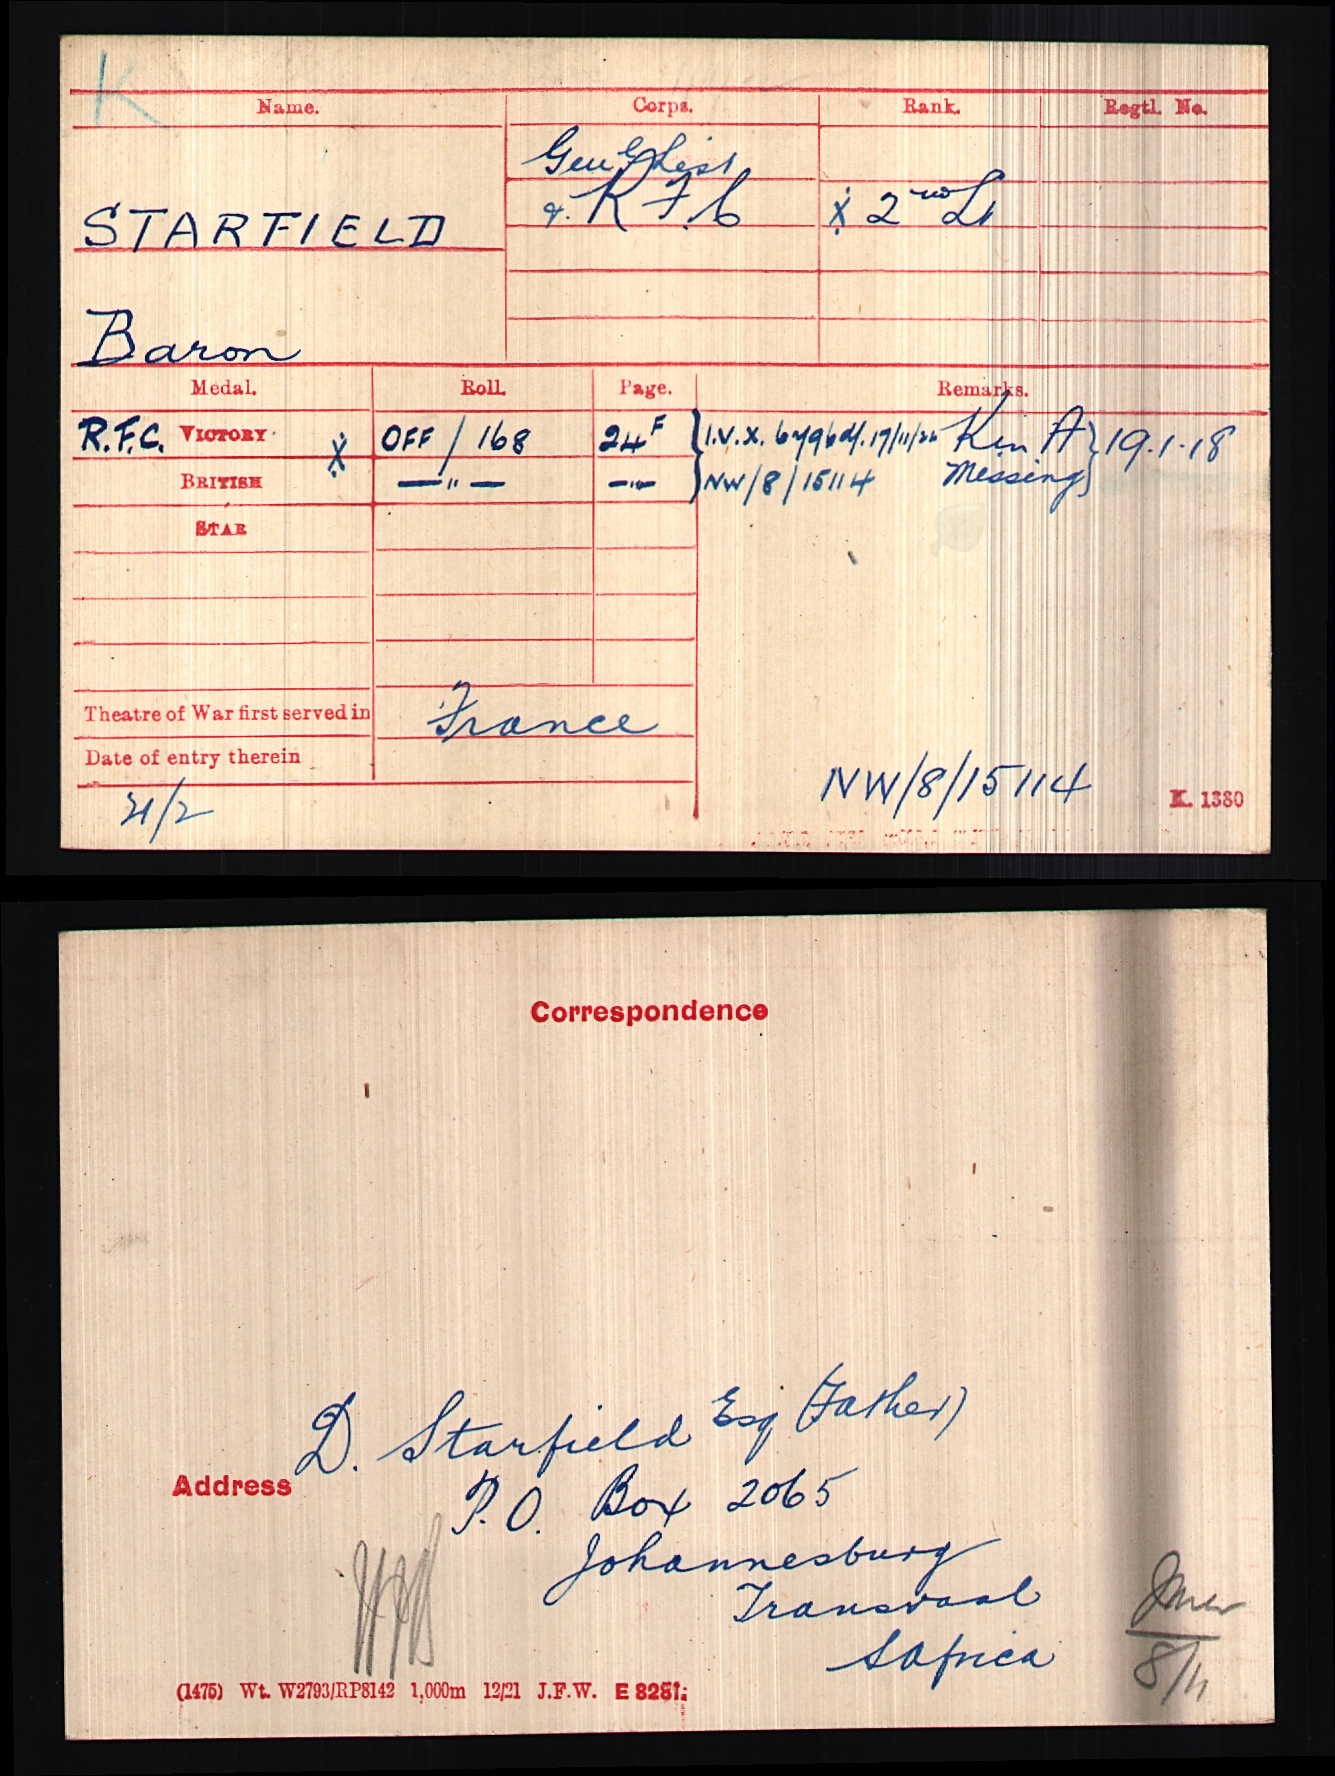 K
Name. Corps. Rank. Regtl. No.
Genl List
STARFIELD & R F C X 2nd Lt
Baron
Medal. Roll. Page. Remarks.
R.F.C. VICTORY X OFF/168 24F I.V.X. 17/11/26 K in A 19.1.18
BRITISH —"— —"— NW/8/15114 Missing
STAR
Theatre of War first served in France
Date of entry therein
NW/8/15114 K. 1380
Correspondence
D. Starfield Esq (Father)
Address
P.O. Box 2065
Johannesburg
Transvaal
S Africa
8/11
(1475) Wt. W2793/RP8142 1,000m 12/21 J.F.W. E 8281.